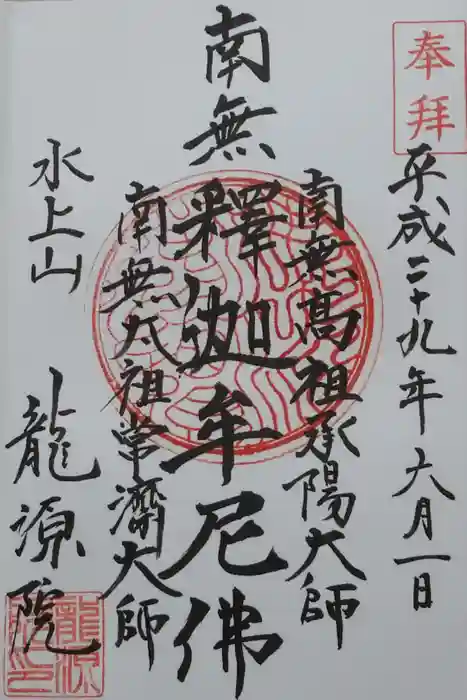 奉拝
平成二十九年六月一日
南無高祖承陽大師
南無釋迦牟尼佛
南無太祖常濟大師
水上山
龍源院